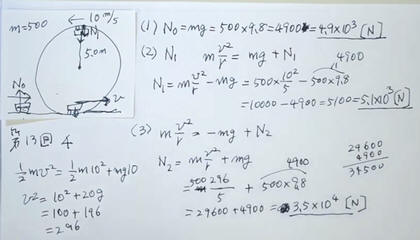 m=500
← 10 m/s
N₁
5.0m
N₀
v
(1) N₀=mg=500×9.8=4900=4.9×10³ [N]
(2) N₁ m v²/r = mg+N₁
4900
N₁=m v²/r −mg=500×10²/5 −500×9.8
=10000−4900=5100=5.1×10³ [N]
第13回 4
½mv²=½m10²+mg10
v²=10²+20g
=100+196
=296
(3) m v²/r = −mg+N₂
N₂=m v²/r +mg
4900
=500 296/5 + 500×9.8
=29600+4900=3.5×10⁴ [N]
29600
4900
34500